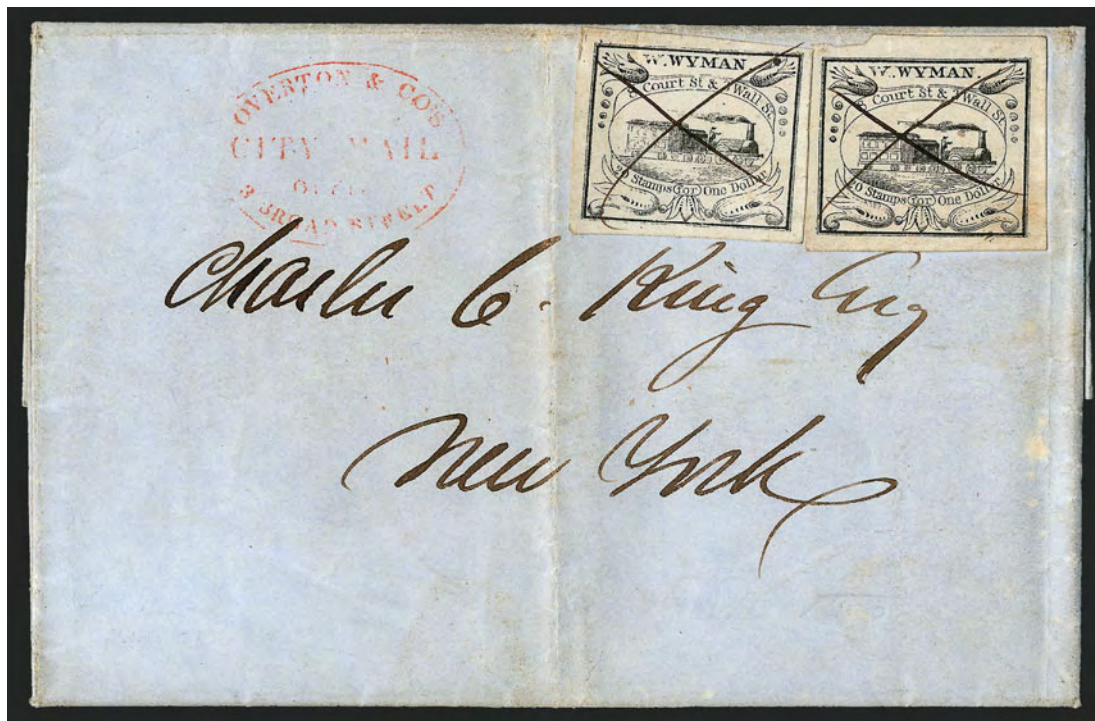 OVERTON & CO'S
CITY MAIL
3 BROAD STREET
W. WYMAN
Court St & 3 Wall St.
20 Stamps for One Dollar
W. WYMAN.
8 Court St & 3 Wall St.
20 Stamps for One Dollar
Charles C. King Esq
New York